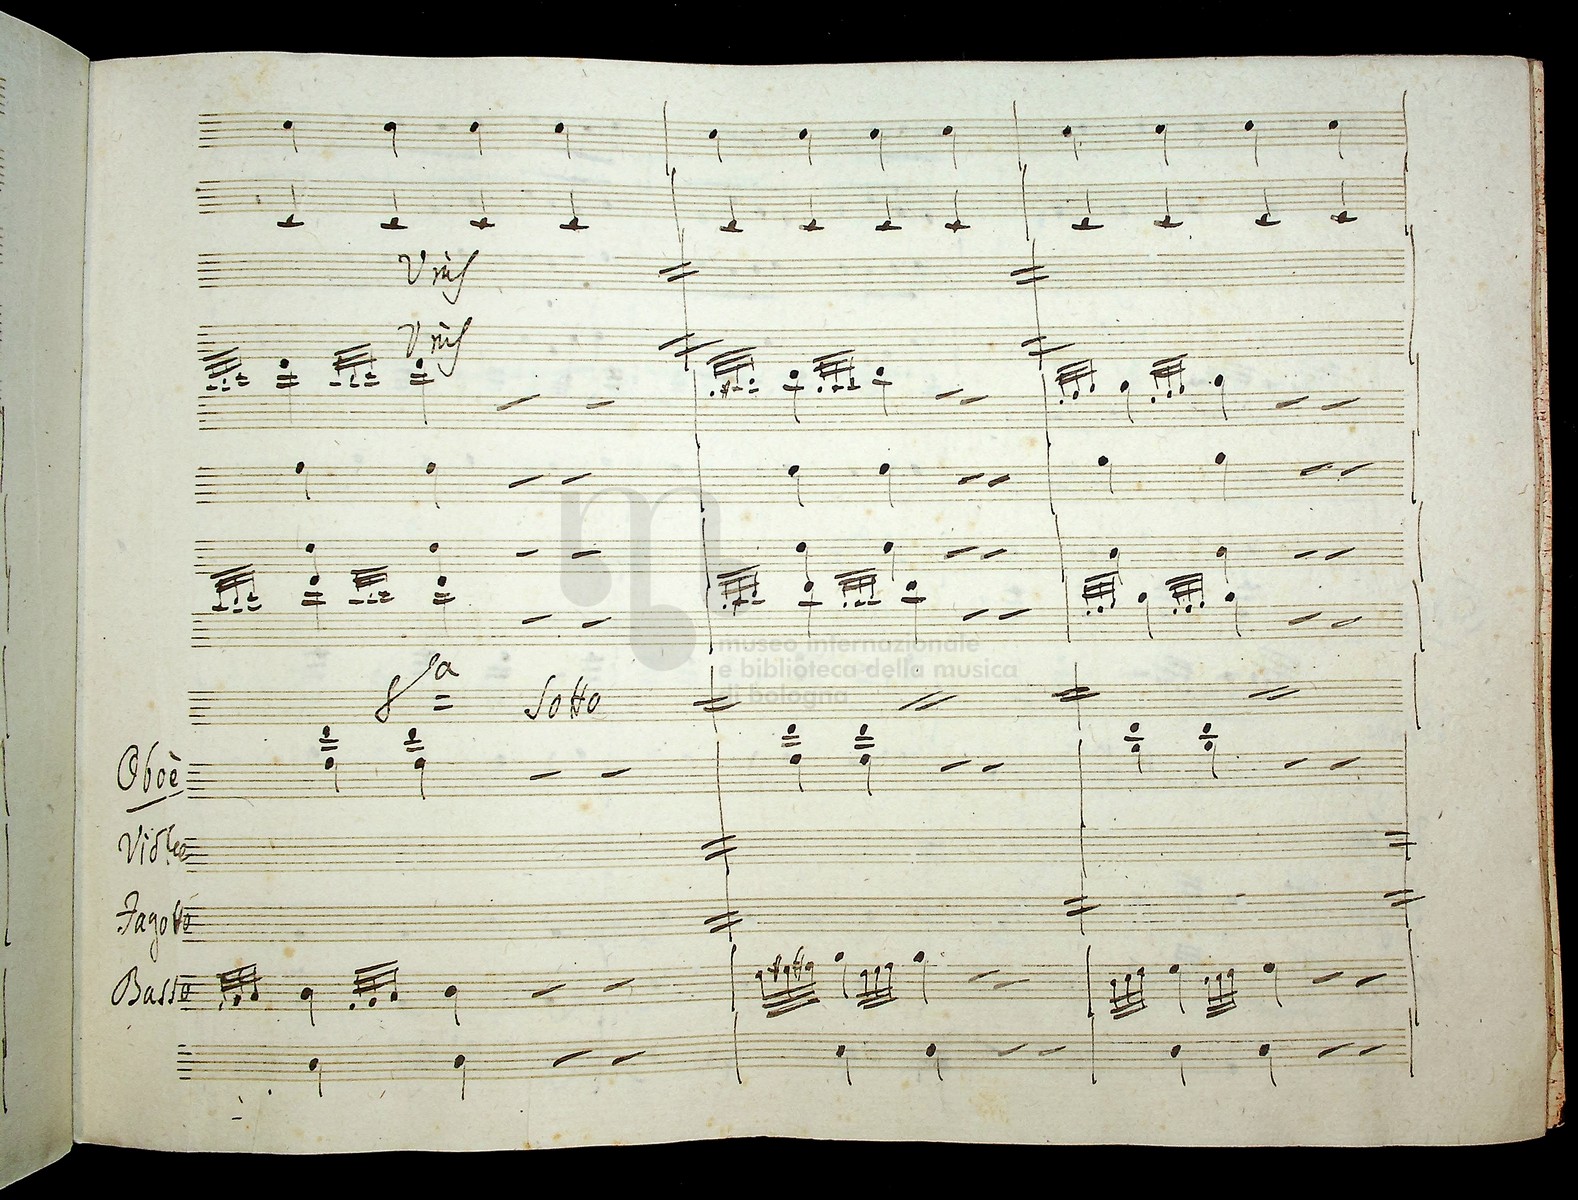 Unis
Unis
8va Sotto
museo internazionale
e biblioteca della musica
di bologna
Oboè
Viola
Fagotto
Basso